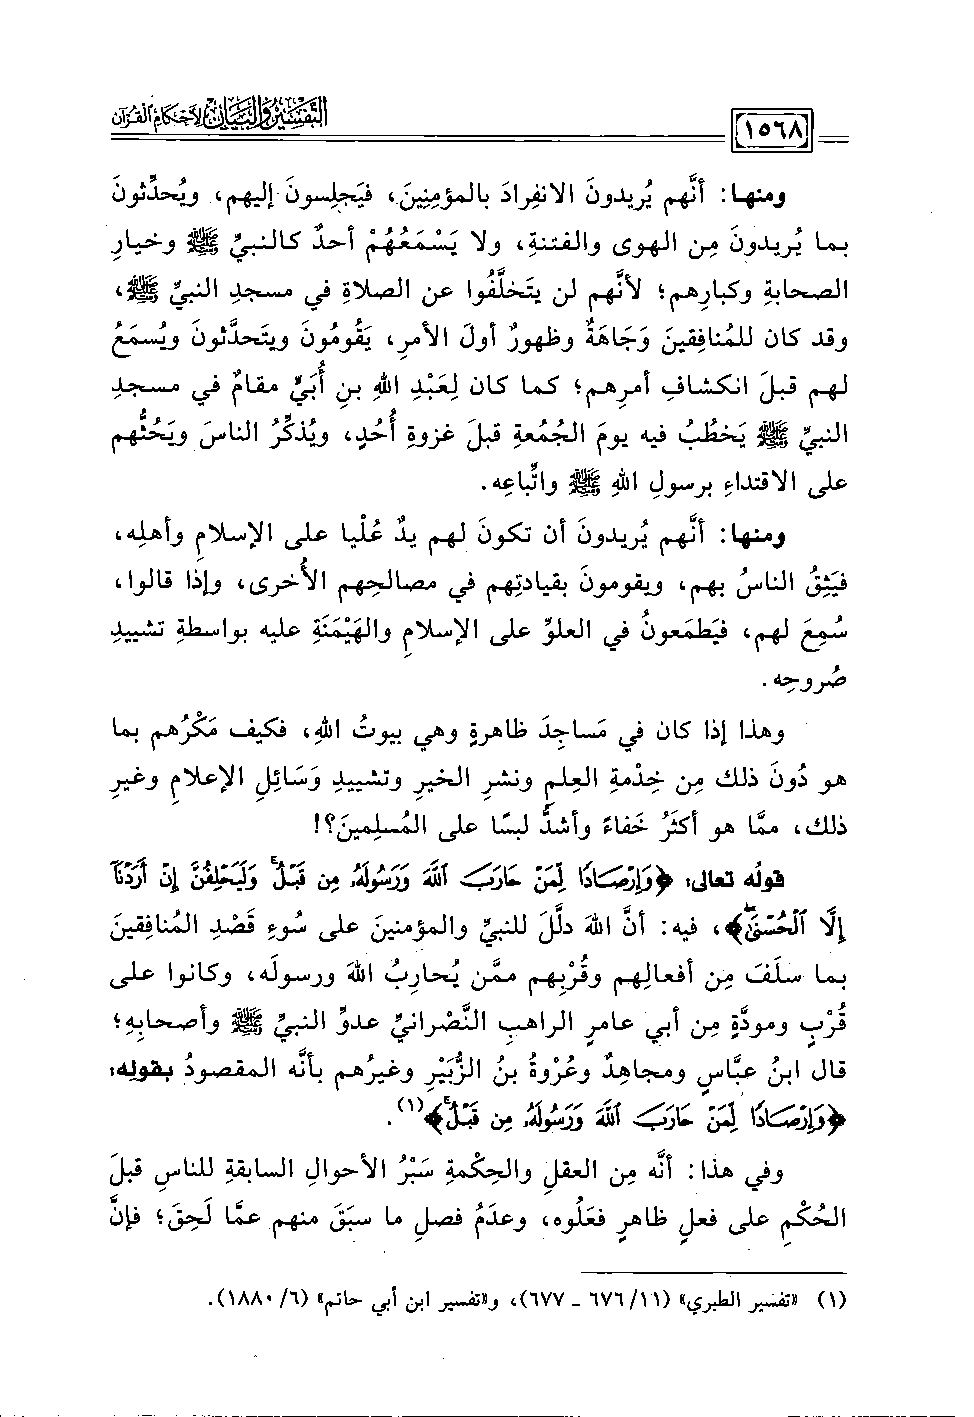 ١٥٦٨
التفسير والبيان لأحكام القرآن
ومنها: أنَّهم يُريدونَ الانفِرادَ بالمؤمِنِينَ، فيَجلِسونَ إليهم، ويُحدِّثونَ
بما يُريدونَ مِن الهوى والفتنةِ، ولا يَسْمَعُهُمْ أحدٌ كالنبيِّ ﷺ وخيارِ
الصحابةِ وكبارِهم؛ لأنَّهم لن يتخلَّفُوا عن الصلاةِ في مسجدِ النبيِّ ﷺ،
وقد كان للمُنافِقينَ وَجَاهَةٌ وظهورٌ أولَ الأمرِ، يَقُومُونَ ويتحدَّثونَ ويُسمَعُ
لهم قبلَ انكشافِ أمرِهم؛ كما كان لِعَبْدِ اللهِ بنِ أُبَيٍّ مقامٌ في مسجدِ
النبيِّ ﷺ يَخطُبُ فيه يومَ الجُمُعةِ قبلَ غزوةِ أُحُدٍ، ويُذكِّرُ الناسَ ويَحُثُّهم
على الاقتداءِ برسولِ اللهِ ﷺ واتِّباعِه.
ومنها: أنَّهم يُريدُونَ أن تكونَ لهم يدٌ عُلْيا على الإسلامِ وأهلِه،
فيَثِقُ الناسُ بهم، ويقومونَ بقيادتِهم في مصالحِهم الأُخرى، وإذا قالوا،
سُمِعَ لهم، فيَطمَعونُ في العلوِّ على الإسلامِ والهَيْمَنَةِ عليه بواسطةِ تشييدِ
صُروحِه.
وهذا إذا كان في مَساجِدَ ظاهرةٍ وهي بيوتُ اللهِ، فكيف مَكْرُهم بما
هو دُونَ ذلك مِن خِدْمةِ العِلمِ ونشرِ الخيرِ وتشييدِ وَسَائِلِ الإعلامِ وغيرِ
ذلك، ممَّا هو أكثَرُ خَفاءً وأشدُّ لبسًا على المُسلِمينَ؟!
قولُه تعالى: ﴿وَإِرْصَادًا لِّمَنْ حَارَبَ ٱللَّهَ وَرَسُولَهُۥ مِن قَبْلُ ۚ وَلَيَحْلِفُنَّ إِنْ أَرَدْنَآ
إِلَّا ٱلْحُسْنَىٰ ۖ﴾، فيه: أنَّ اللهَ دلَّلَ للنبيِّ والمؤمنينَ على سُوءِ قَصْدِ المُنافِقينَ
بما سلَفَ مِن أفعالِهم وقُرْبِهم ممَّن يُحارِبُ اللهَ ورسولَه، وكانوا على
قُرْبٍ ومودَّةٍ مِن أبي عامرٍ الراهبِ النَّصْرانيِّ عدوِّ النبيِّ ﷺ وأصحابِهِ؛
قال ابنُ عبَّاسٍ ومجاهِدٌ وعُرْوةُ بنُ الزُّبَيْرِ وغيرُهم بأنَّه المقصودُ بقولِه:
﴿وَإِرْصَادًا لِّمَنْ حَارَبَ ٱللَّهَ وَرَسُولَهُۥ مِن قَبْلُ ۚ﴾(١).
وفي هذا: أنَّه مِن العقلِ والحِكْمةِ سَبْرُ الأحوالِ السابقةِ للناسِ قبلَ
الحُكْمِ على فعلٍ ظاهرٍ فعَلُوه، وعدَمُ فصلِ ما سبَقَ منهم عمَّا لَحِقَ؛ فإنَّ
(١) «تفسير الطبري» (١١/ ٦٧٦ - ٦٧٧)، و«تفسير ابن أبي حاتم» (٦/ ١٨٨٠).